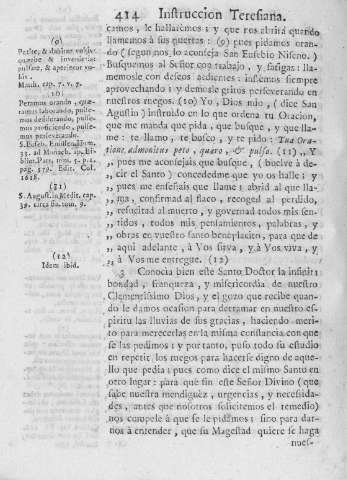 414 Instruccion Teresiana.
camos, e hallaremos; y que nos abrirá quando
llamemos à sus puertas: (9) pues pidamos oran-
do (segun nos lo aconseja San Eusebio Niseno.)
Busquemos al Señor con trabajo, y fatigas: lla-
memosle con deseos ardientes: instemos siempre
aprovechando; y demosle gritos perseverando en
nuestros ruegos. (10) Yo, Dios mio, (dice San
Agustin) instruìdo en lo que ordena tu Oracion,
que me manda que pida, que busque, y que lla-
me: te llamo, te busco, y te pido: Tua Ora-
tione admonitus peto, quæro, & pulso. (11) Y
pues me aconsejais que busque, (buelve à de-
cir el Santo) concededme que yo os halle: y
pues me enseñais que llame: abrid al que lla-
ma, confirmad al flaco, recoged al perdido,
resucitad al muerto, y governad todos mis sen-
tidos, todos mis pensamientos, palabras, y
obras en vuestro santo beneplacito, para que de
aqui adelante, à Vos sirva, y à Vos viva, y
à Vos me entregue. (12)
3 Conocia bien este Santo Doctor la infinita
bondad, franqueza, y misericordia de nuestro
Clementissimo Dios, y el gozo que recibe quan-
do le damos ocasion para derramar en nuestro es-
piritu las lluvias de sus gracias, haciendo meri-
to para merecerlas en la misma constancia con que
se las pedimos: y por tanto, puso todo su estudio
en repetir los ruegos para hacerse digno de aque-
llo que pedia: pues como dice el mismo Santo en
otro lugar: para què fin este Señor Divino (que
sabe nuestra mendiguèz, urgencias, y necesida-
des, antes que nosotros solicitemos el remedio)
nos compele à que se le pidamos: sino para dar-
nos à entender, que su Magestad quiere se haga
nues-
(9)
Petite, & dabitur vobis:
quærite & invenietis:
pulsate, & aperietur vo-
bis.
Matth. cap. 7. v. 7.
(10)
Petamus orando, quæ-
ramus laborando, pulse-
mus desiderando, pulse-
mus proficiendo, pulse-
mus perseverando.
S. Euseb.
33. ad Monach.
Pat. tom. 5. p. 1.
pag. 579. Edit. Col.
1618.
(11)
S. August. in Medit. cap.
39. circa fin. tom. 9.
(12)
Idem ibid.